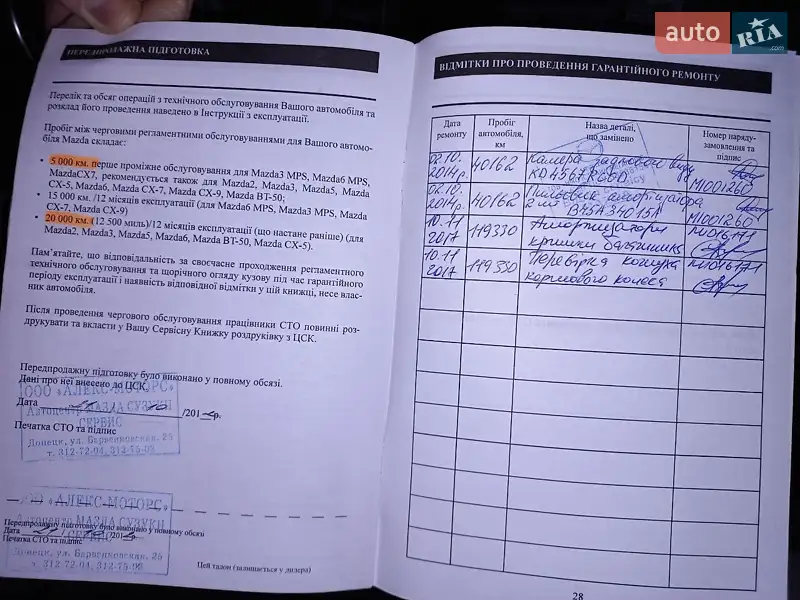 auto RIA.com
ПЕРЕДПРОДАЖНА ПІДГОТОВКА
Перелік та обсяг операцій з технічного обслуговування Вашого автомобіля та
розклад його проведення наведено в Інструкції з експлуатації.
Пробіг між черговими регламентними обслуговуваннями для Вашого автомо-
біля Mazda складає:
• 5 000 км. перше проміжне обслуговування для Mazda3 MPS, Mazda6 MPS,
MazdaCX7, рекомендується також для Mazda2, Mazda3, Mazda5, Mazda
CX-5, Mazda6, Mazda CX-7, Mazda CX-9, Mazda BT-50;
• 15 000 км. /12 місяців експлуатації (для Mazda6 MPS, Mazda3 MPS, Mazda
CX-7, Mazda CX-9)
• 20 000 км. (12 500 миль)/12 місяців експлуатації (що настане раніше) (для
Mazda2, Mazda3, Mazda5, Mazda6, Mazda BT-50, Mazda CX-5).
Пам'ятайте, що відповідальність за своєчасне проходження регламентного
технічного обслуговування та щорічного огляду кузову під час гарантійного
періоду експлуатації і наявність відповідної відмітки у цій книжці, несе влас-
ник автомобіля.
Після проведення чергового обслуговування працівники СТО повинні роз-
друкувати та вкласти у Вашу Сервісну Книжку роздруківку з ЦСК.
Передпродажну підготовку було виконано у повному обсязі.
Дані про неї внесено до ЦСК.
ООО «АЛЕКС-МОТОРС»
Дата /201 р.
Автоцентр МАЗДА СУЗУКИ
СЕРВИС
Печатка СТО та підпис
Донецк, ул. Барвинковская, 25
т. 312-72-04, 312-75-03
ООО «АЛЕКС-МОТОРС»
Автоцентр МАЗДА СУЗУКИ
Передпродажну підготовку було виконано у повному обсязі
Дата /201 р.
Печатка СТО та підпис
Донецк, ул. Барвинковская, 25
т. 312-72-04, 312-75-03
Цей талон (залишається у дилера)
ВІДМІТКИ ПРО ПРОВЕДЕННЯ ГАРАНТІЙНОГО РЕМОНТУ
Дата ремонту Пробіг автомобіля, км Назва деталі, що замінено Номер наряду-замовлення та підпис
02.10.2014р. 40162 Камера заднього виду KD4567RC60 М1001260
02.10.2014р. 40162 Пильовик амортизатора 2 шт. B45A34015A М1001260
10.11 2017 119330 Амортизатори кришки багажника М1016171
10.11 2017 119330 Перевірка кожуха кормового колеса М1016171
28